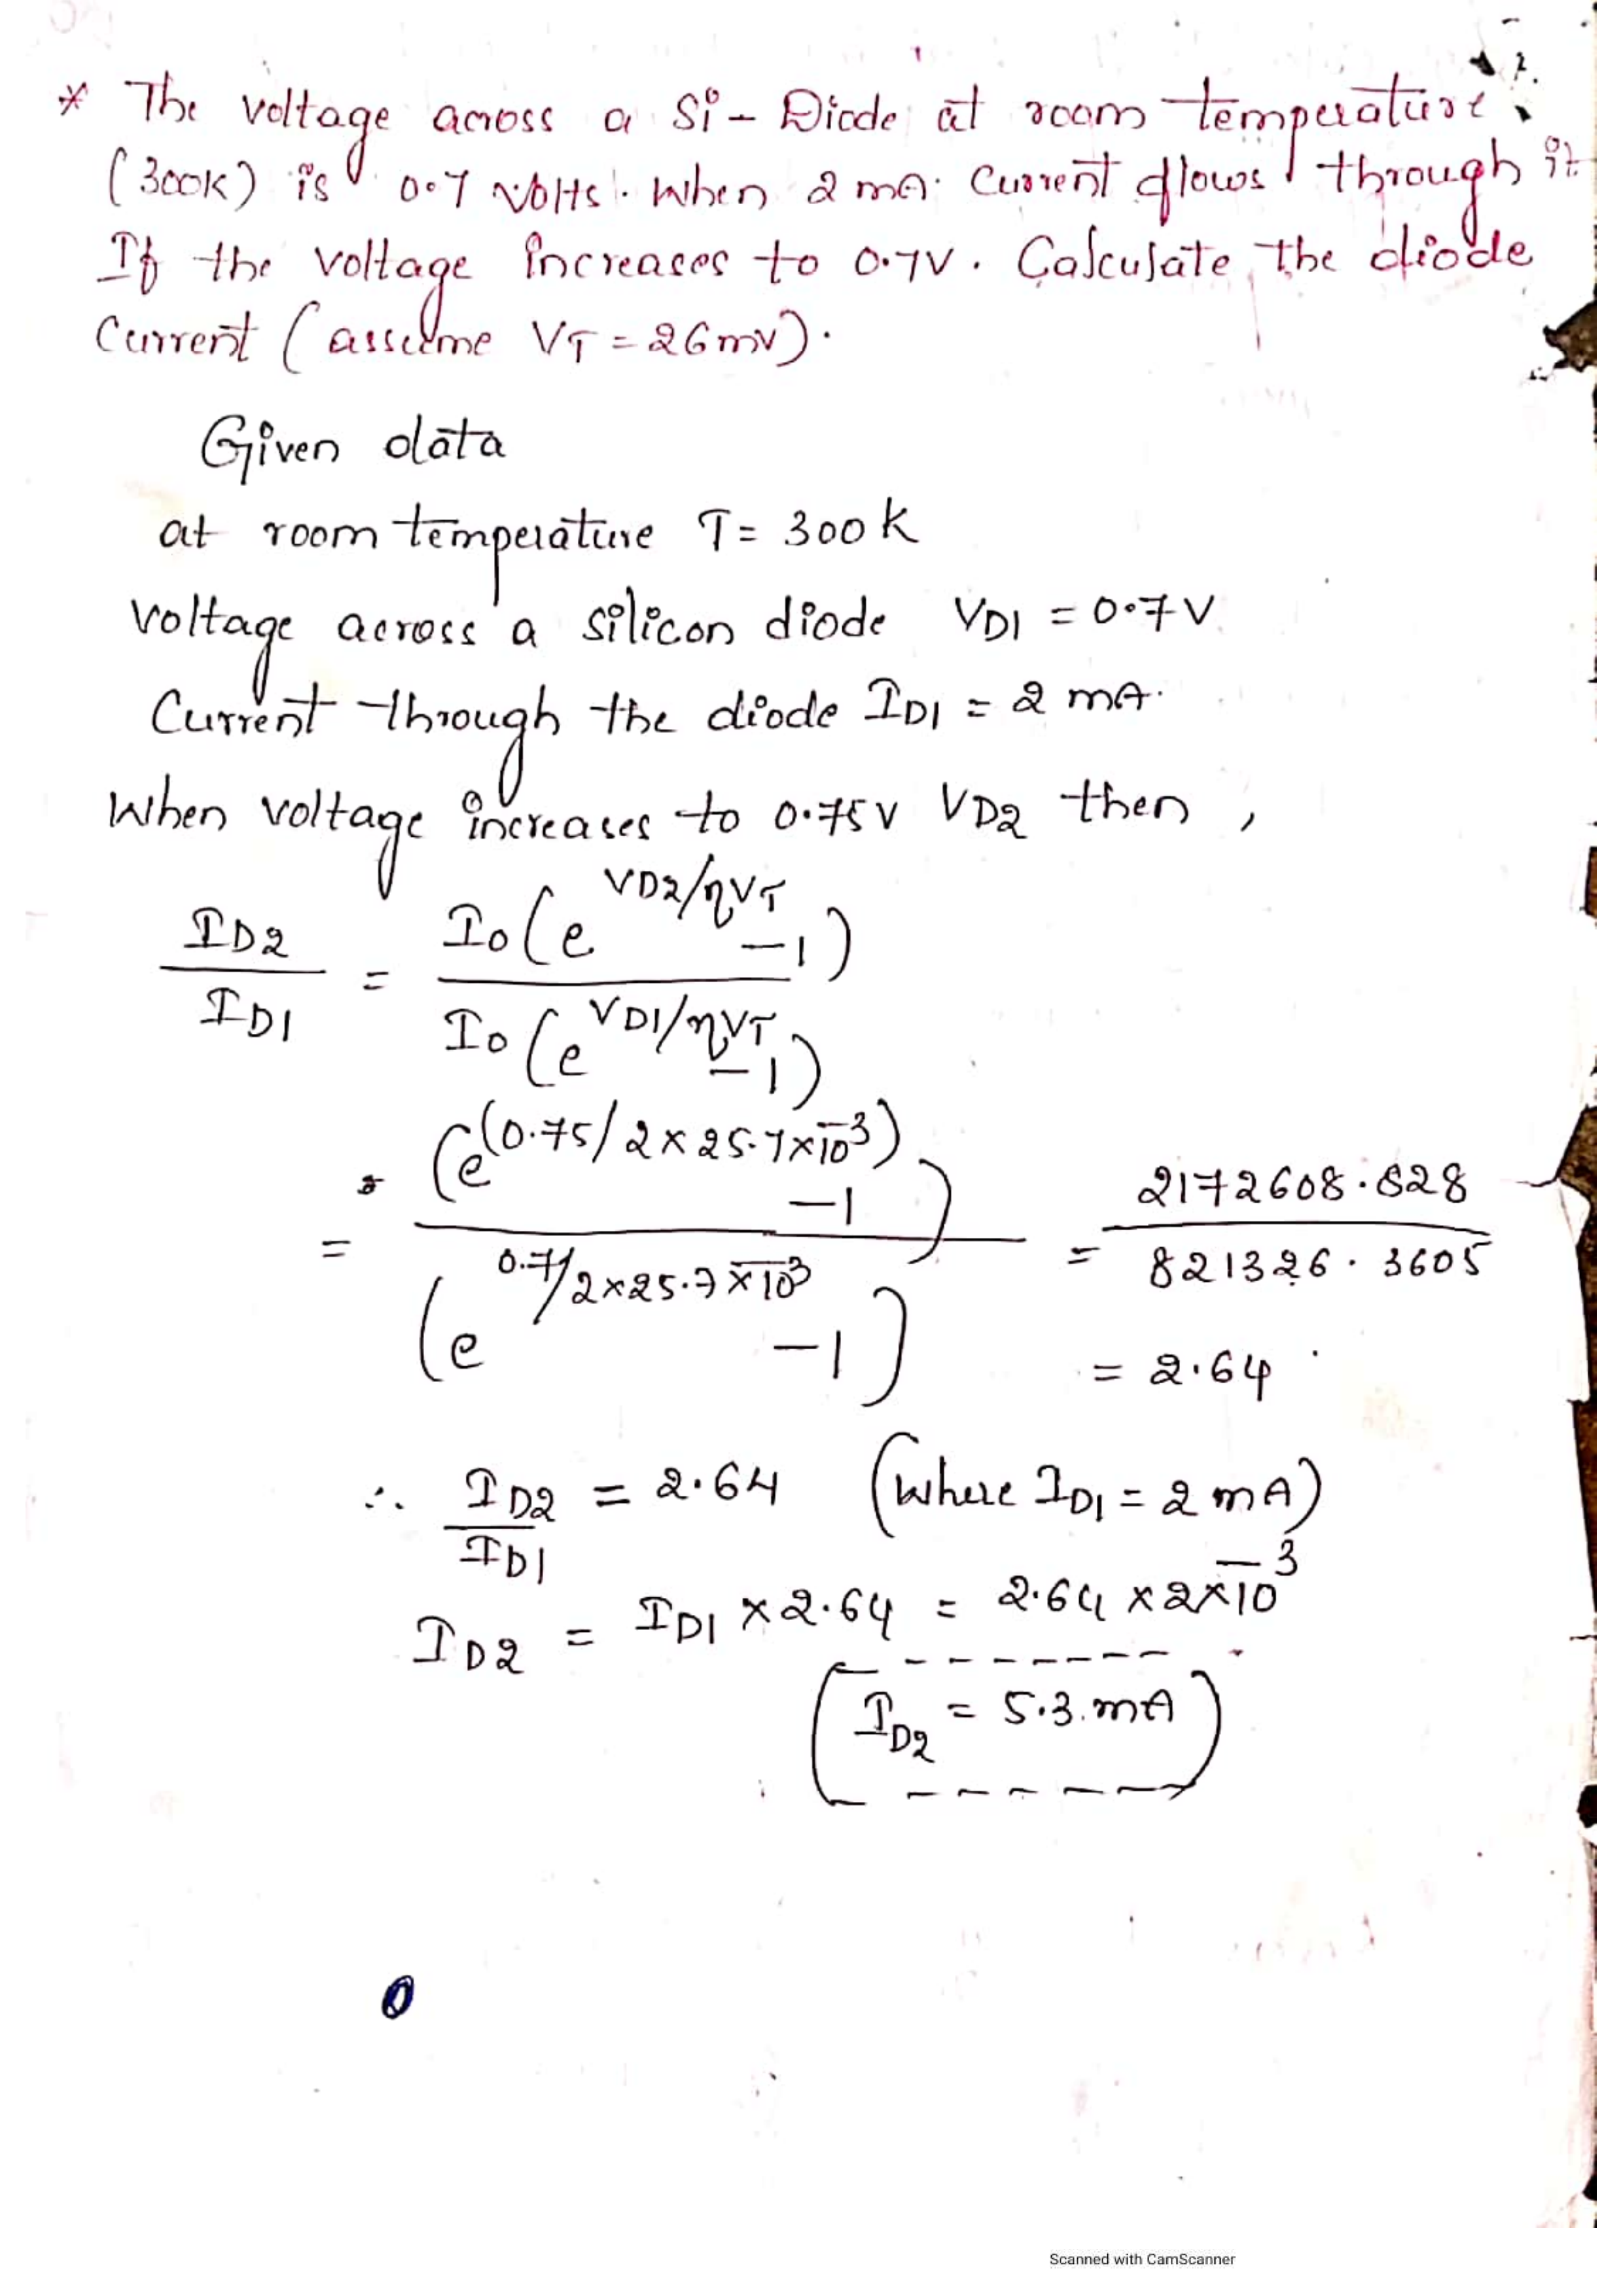 * The voltage across a Si - Diode at room temperature
(300K) is 0.7 volts. When 2 mA. Current flows through it
If the voltage increases to 0.7V. Calculate the diode
Current (assume VT = 26mV).
Given data
at room temperature T = 300 K
voltage across a silicon diode VD1 = 0.7 V
Current through the diode ID1 = 2 mA.
When voltage increases to 0.75V VD2 then ,
ID2 / ID1 = I0 (e^VD2/ηVT - 1) / I0 (e^VD1/ηVT - 1)
= (e^(0.75/2 x 25.7 x 10^-3) - 1) / (e^0.7/2 x 25.7 x 10^-3 - 1) = 2172608.828 / 821326.3605
= 2.64
∴ ID2 / ID1 = 2.64 (Where ID1 = 2 mA)
ID2 = ID1 x 2.64 = 2.64 x 2 x 10^-3
(ID2 = 5.3.mA)
Scanned with CamScanner